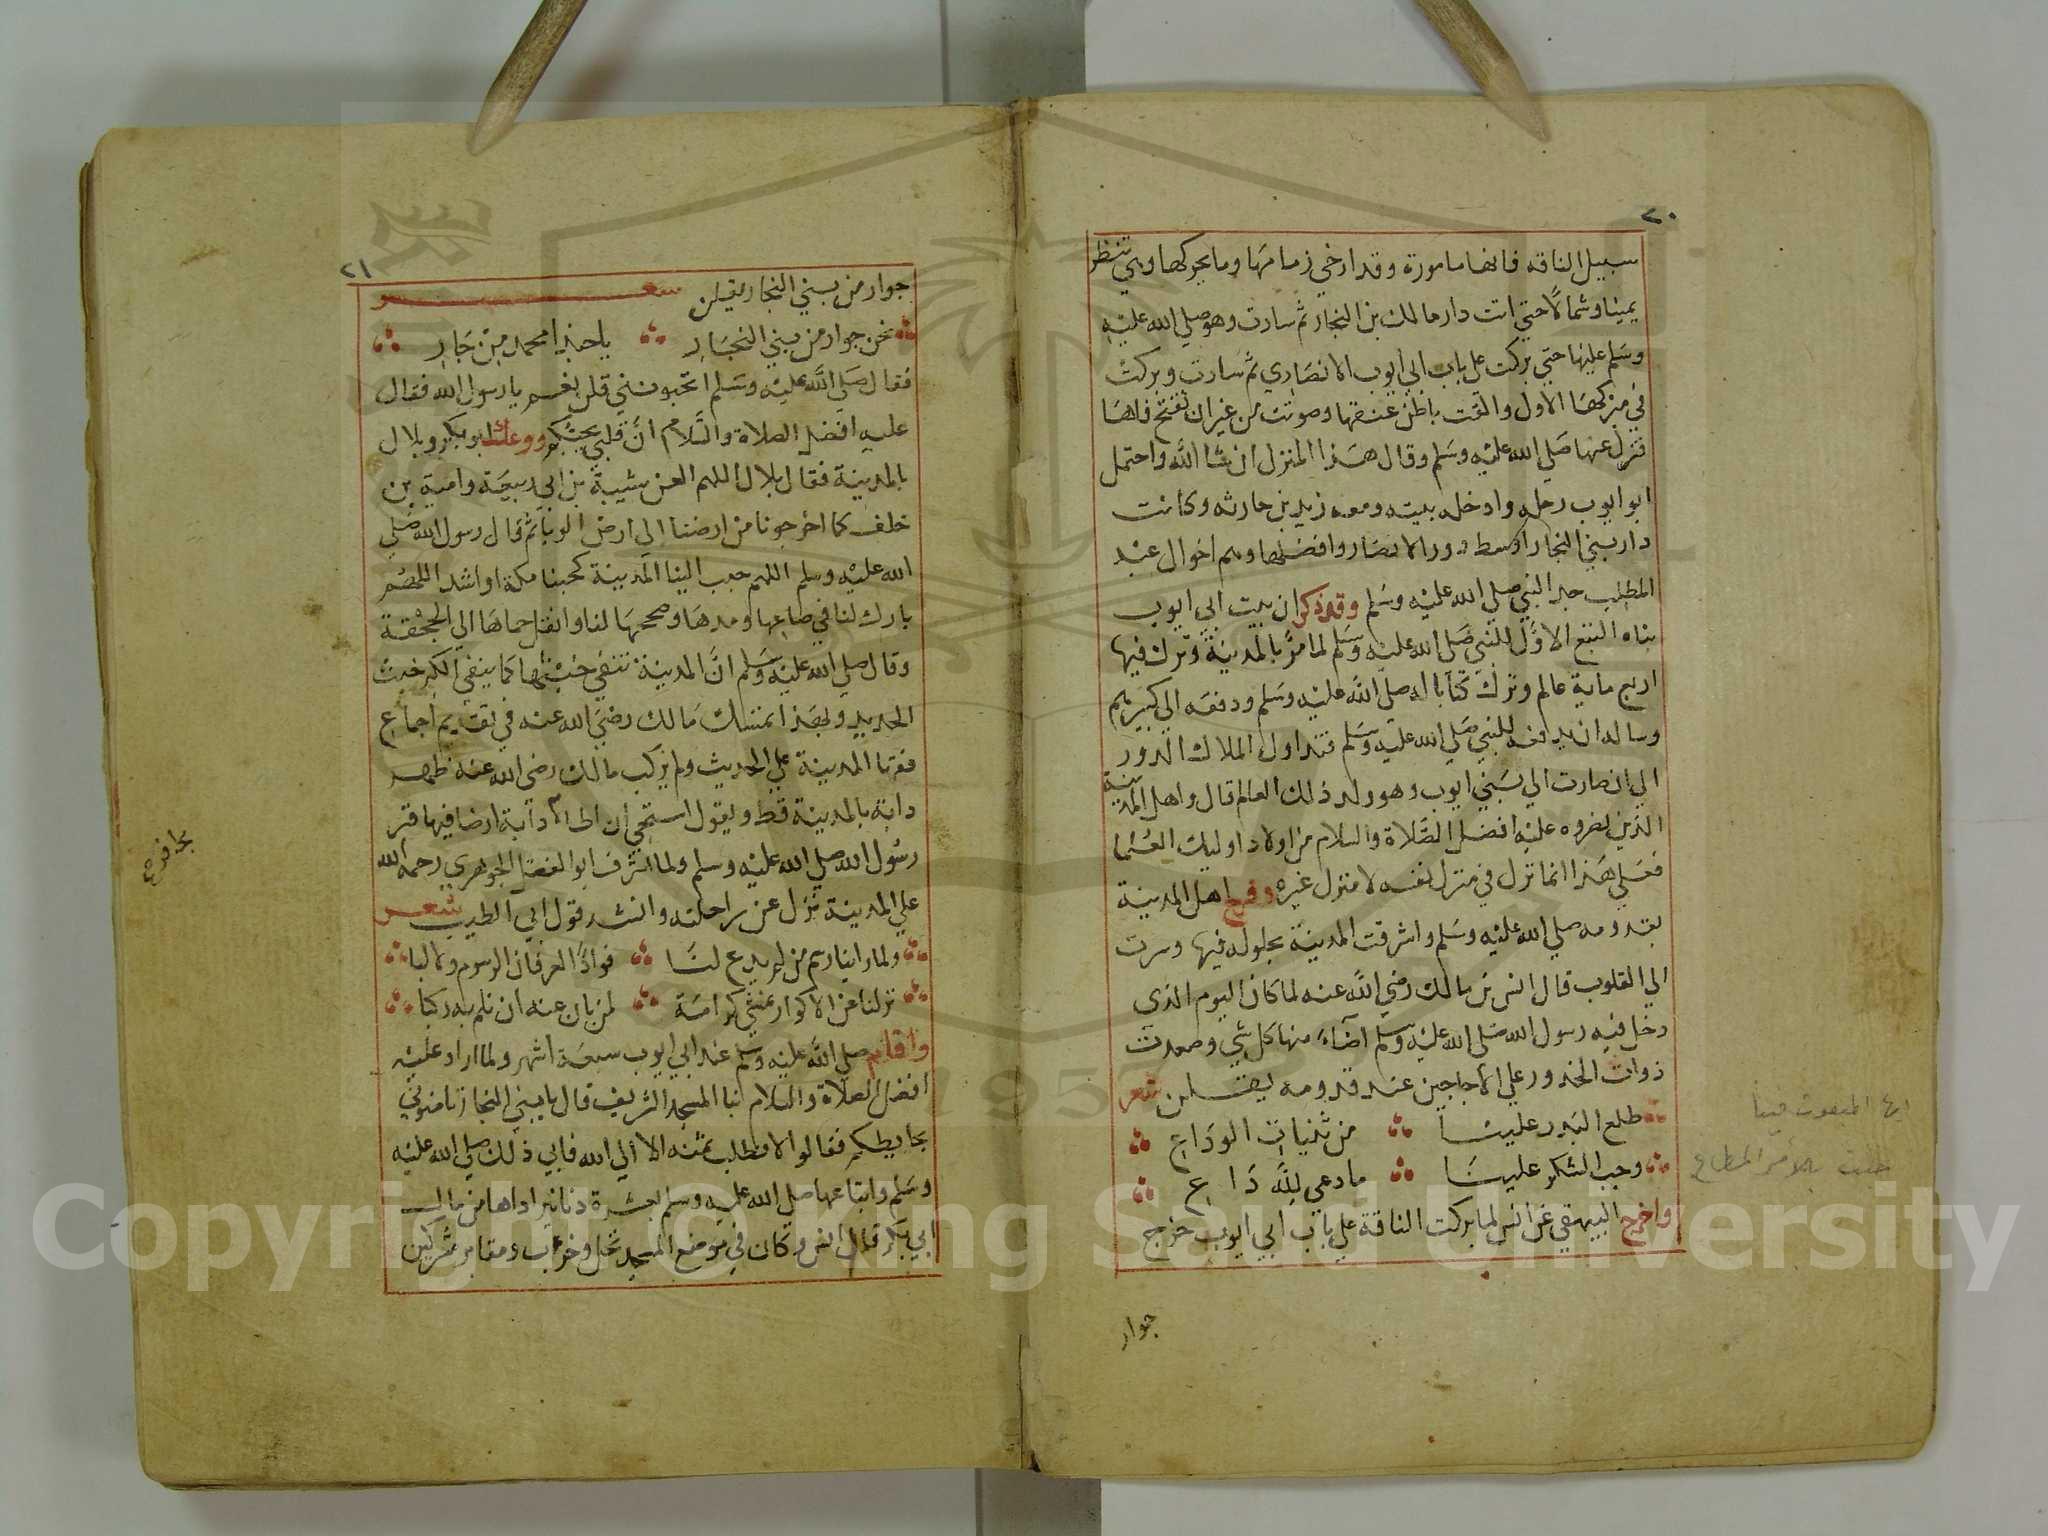 ٢٠
سبيل الناقه فانها مامورة وقد ارخي زمامها وما يحركها وهي تنظر
يمينا وشمالا حتي اتت دار مالك بن النجار ثم سارت وهو صلي الله عليه
وسلم عليها حتي بركت على باب ابي ايوب الانصاري ثم سارت وبركت
في مبركها الاول والقت باطن عنقها وصوتت من غير ان تفتح فاها
فنزل عنها صلي الله عليه وسلم وقال هذا المنزل ان شا الله واحتمل
ابو ايوب رحله وادخله بيته ومعه زيد بن حارثه وكانت
دار بني النجار اوسط دور الانصار وافضلها وهم اخوال عبد
المطلب جد النبي صلي الله عليه وسلم وقد ذكر ان بيت ابي ايوب
بناه التبع الاول للنبي صلي الله عليه وسلم لما مر بالمدينة وترك فيها
اربع ماية عالم وترك كتابا له صلي الله عليه وسلم ودفعه الي كبيرهم
وساله ان يدفعه للنبي صلي الله عليه وسلم فتداول الملاك الدور
الي ان صارت الي بني ايوب وهو ولد ذلك العالم قال واهل المدينة
الذين نصروه عليه افضل الصلاة والسلام من اولاد اوليك العلما
فعلي هذا انما نزل في منزل نفسه لا منزل غيره وفرح اهل المدينة
بقدومه صلي الله عليه وسلم واشرقت المدينة بحلوله فيها وسرت
الي القلوب قال انس بن مالك رضي الله عنه لما كان اليوم الذي
دخل فيه رسول الله صلي الله عليه وسلم اضاء منها كل شي وصعدت
ذوات الخدور علي الاجاجين عند قدومه يقلن شعر
طلع البدر علينا من ثنيات الوداع
وجب الشكر علينا ما دعي لله داع
ايها المبعوث فينا
جئت بالامر المطاع
واخرج البيهقي عن انس لما بركت الناقة علي باب ابي ايوب خرج
جوار
٢١
جوار من بني النجار يقلن شعر
نحن جوار من بني النجار يا حبذا محمد من جار
فقال صلي الله عليه وسلم اتحبونني قلن نعم يا رسول الله فقال
عليه افضل الصلاة والسلام ان قلبي يحبكم ووعك ابو بكر وبلال
بالمدينة فقال بلال اللهم العن شيبة بن ابي ربيعة وامية بن
خلف كما اخرجونا من ارضنا الي ارض الوبا ثم قال رسول الله صلي
الله عليه وسلم اللهم حبب الينا المدينة كحبنا مكة او اشد اللهم
بارك لنا في صاعها ومدها وصححها لنا وانقل حماها الي الجحفة
وقال صلي الله عليه وسلم ان المدينة تنفي خبثها كما ينفي الكير خبث
الحديد وبهذا تمسك مالك رضي الله عنه في تقديم اجماع
فقها المدينة علي الحديث ولم يركب مالك رضي الله عنه ظهر
دابة بالمدينة قط ويقول استحي ان اطا بدابة ارضا فيها قبر
رسول الله صلي الله عليه وسلم ولما اشرف ابو الفضل الجوهري رحمه الله
علي المدينة نزل عن راحلته وانشد قول ابي الطيب شعر
ولما راينا رسم من لم يدع لنا فوادا لعرفان الرسوم ولا لبا
نزلنا عن الاكوار نمشي كرامة لمن بان عنه ان نلم به ركبا
واقام صلي الله عليه وسلم عند ابي ايوب سبعة اشهر ولما اراد عليه
افضل الصلاة والسلام بنا المسجد الشريف قال يا بني النجار ثامنوني
بحايطكم فقالوا لا نطلب ثمنه الا الي الله فابي ذلك صلي الله عليه
وسلم وابتاعها صلي الله عليه وسلم بعشرة دنانير اداها من مال
ابي بكر قال انس وكان في موضع المسجد نخل وخراب ومقابر مشركين